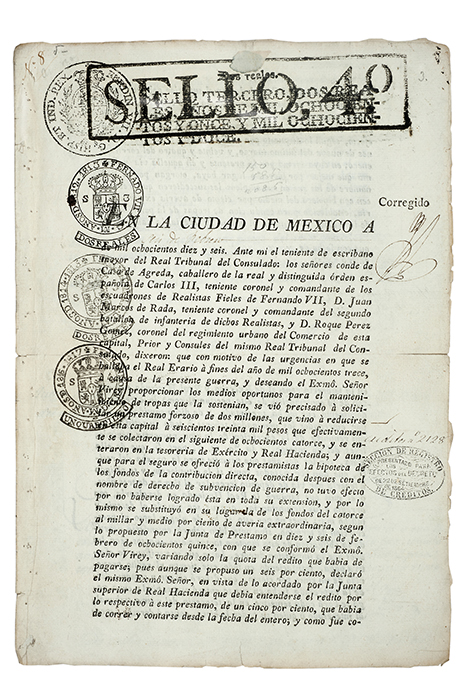 N. 8
Dos reales.
SELLO, 4º
SELLO TERCERO, DOS REA
LES, AÑOS DE MIL OCHOCIEN-
TOS Y ONCE, Y MIL OCHOCIEN
TOS Y DOCE.
Corregido
EN LA CIUDAD DE MEXICO A
de mil ochocientos diez y seis. Ante mi el teniente de escribano
mayor del Real Tribunal del Consulado: los señores conde de
Casa de Agreda, caballero de la real y distinguida órden es-
pañola de Carlos III, teniente coronel y comandante de los
escuadrones de Realistas Fieles de Fernando VII, D. Juan
Marcos de Rada, teniente coronel y comandante del segundo
batallon de infanteria de dichos Realistas, y D. Roque Perez
Gomez, coronel del regimiento urbano del Comercio de esta
capital, Prior y Consules del mismo Real Tribunal del Con-
sulado, dixeron: que con motivo de las urgencias en que se
hallaba el Real Erario à fines del año de mil ochocientos trece,
à causa de la presente guerra, y deseando el Exmô. Señor
Virey proporcionar los medios oportunos para el manteni-
miento de tropas que la sostenian, se vió precisado à solici-
tar un prestamo forzoso de dos millones, que vino à reducirse
en esta capital à seiscientos treinta mil pesos que efectivamen-
te se colectaron en el siguiente de ochocientos catorce, y se en-
teraron en la tesoreria de Exército y Real Hacienda; y aun-
que para el seguro se ofreció à los prestamistas la hipoteca de
los fondos de la contribucion directa, conocida despues con el
nombre de derecho de subvencion de guerra, no tuvo efecto
por no baberse logrado ésta en toda su extension, y por lo
mismo se substituyó en su lugar la de los fondos del catorce
al millar y medio por ciento de averia extraordinaria, segun
lo propuesto por la Junta de Prestamo en diez y seis de fe-
brero de ochocientos quince, con que se conformó el Exmô.
Señor Virey, variando solo la quota del redito que habia de
pagarse; pues aunque se propuso un seis por ciento, declaró
el mismo Exmô. Señor, en vista de lo acordado por la Junta
superior de Real Hacienda que debia entenderse el redito por
lo respectivo à este prestamo, de un cinco por ciento, que babia
de correr y contarse desde la fecha del entero; y como fue co-
DOS REALES
DOS REALES
UN QUARTILLO
2128
SECCION DE REGISTRO
DE CREDITOS